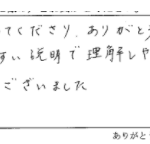 てくださり、ありがとう
すい説明で理解しや
ございました
ありがとう